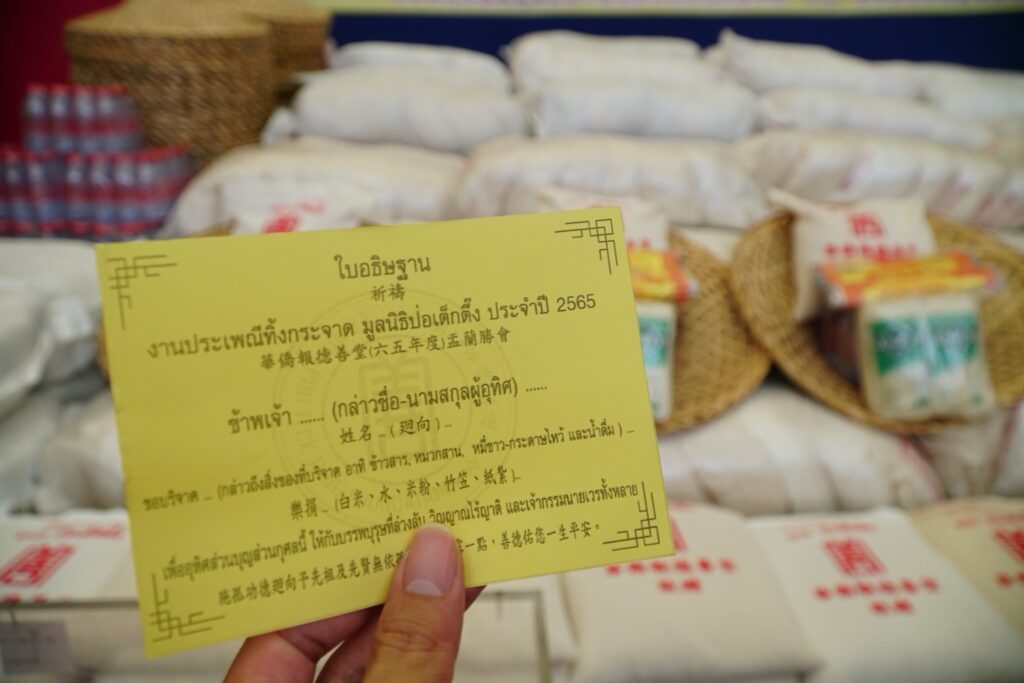 ใบอธิษฐาน
祈禱
งานประเพณีทิ้งกระจาด มูลนิธิป่อเต็กตึ๊ง ประจำปี 2565
華僑報德善堂(六五年度)盂蘭勝會
ข้าพเจ้า ...... (กล่าวชื่อ-นามสกุลผู้อุทิศ) ......
姓名 .. ( 廻向 ) ..
ขอบริจาค ... (กล่าวถึงสิ่งของที่บริจาค อาทิ ข้าวสาร, หมวกสาน, หมี่ขาว-กระดาษไหว้ และน้ำดื่ม ) ...
樂捐 .. (白米、水、米粉、竹笠、紙紮)...
เพื่ออุทิศส่วนบุญส่วนกุศลนี้ ให้กับบรรพบุรุษที่ล่วงลับ วิญญาณไร้ญาติ และเจ้ากรรมนายเวรทั้งหลาย
施孤功德廻向予先祖及先賢無依 一點，善德佑您一生平安。